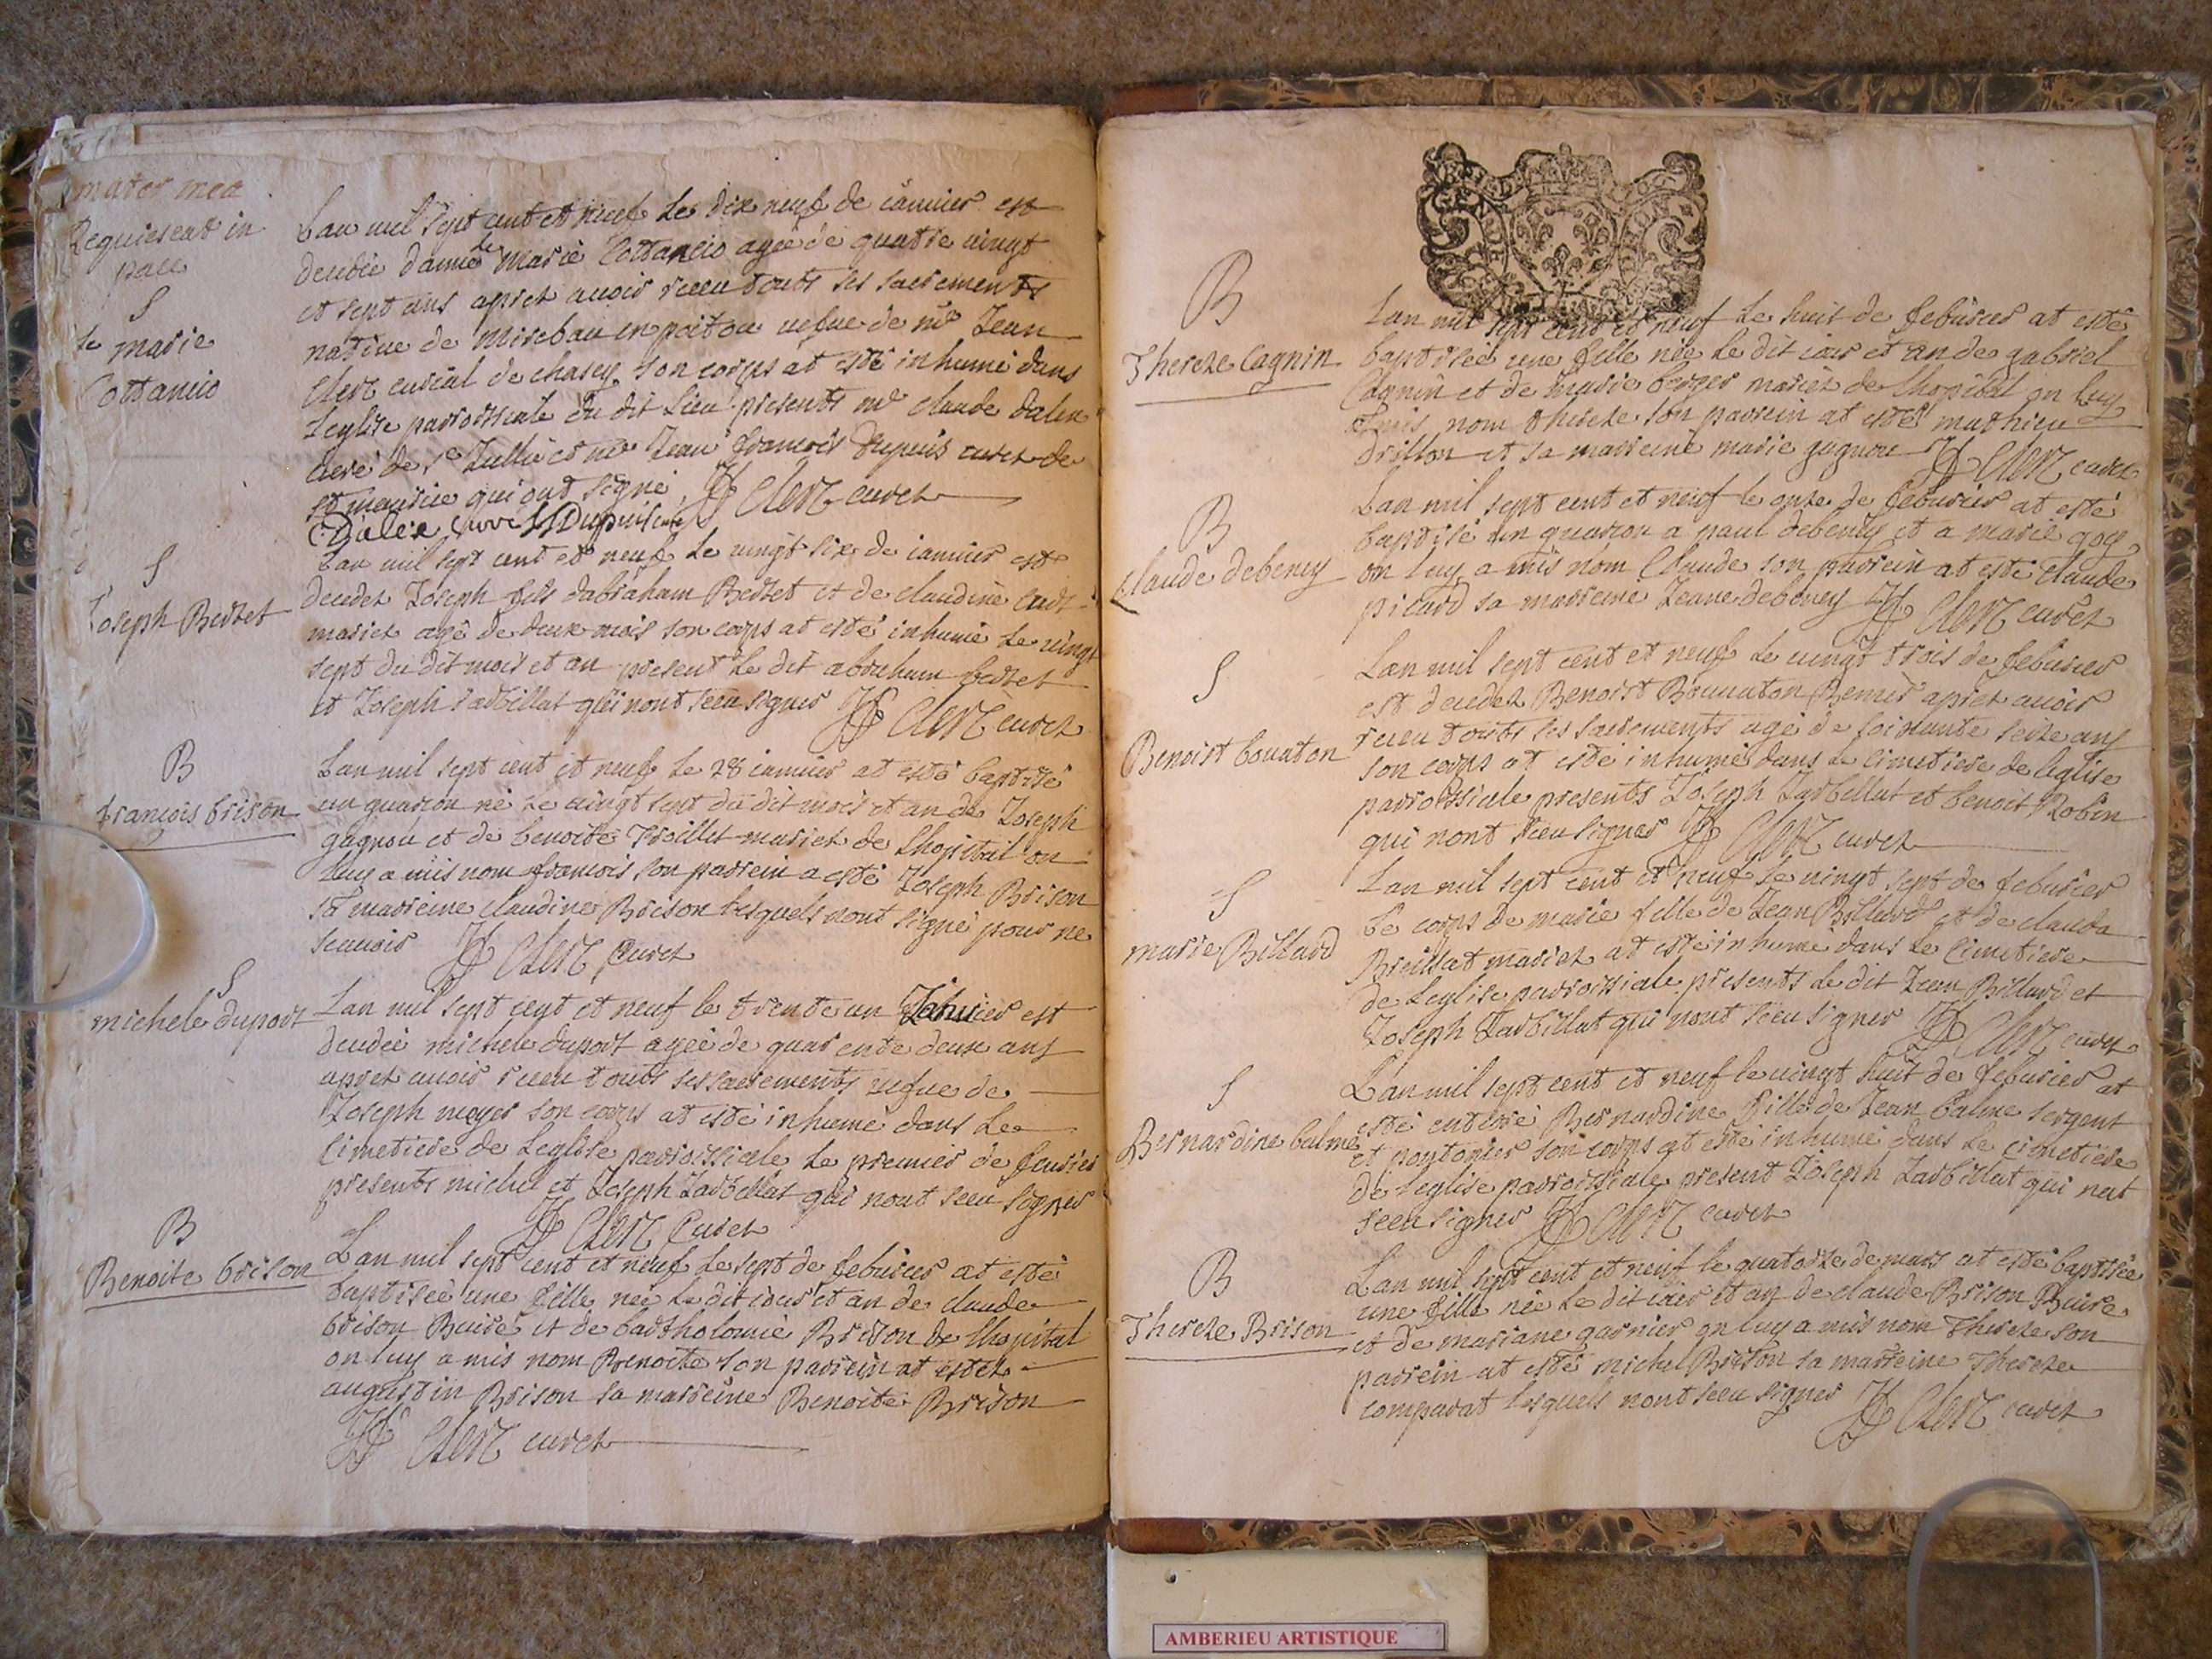 mater mea
Requiescat in
pace
S
de marie
Cottancio
Lan mil sept cent et neuf le dix neuf de januier est
decedée damle marie Cottancio agée de quatre vingt
et sept ans apret auoir receu touts ses sacrements
natiue de Mirebau en poitou uefue de mr Jean
Clerc curial de chasey son corps at esté inhumé dans
Leglise parroissiale du dit Lieu presents mr claude dalex
curé de st Jullie et mr Jean francois Dupuis curet de
st maurice qui ont signé, Clerc curet
Dalex curé Dupuis curé
S
Joseph Bertet
Lan mil sept cent et neuf Le vingt six de januier est
decedet Joseph fils dabraham Bertet et de claudine
mariet agé de deux mois son corps at esté inhumé Le vingt
sept du dit mois et an present Le dit abraham bertet
et Joseph Tarbillat qui nont sceu signer Clerc curet
B
francois brison
Lan mil sept cent et neuf Le 28 januier at esté baptisé
un guarcon né Le vingt sept du dit mois et an de Joseph
gagnou et de benoite Troillet mariet de Lhopital on
Luy a mis nom francois son parrein a esté Joseph Brison
sa marreine claudine Brison lesquels nont signé pour ne
scauoir Clerc Curet
S
michele duport
Lan mil sept cent et neuf le trente un Januier est
decedée michele duport agée de quarente deux ans
apret auoir receu touts ses sacrements uefue de
Joseph moyer son corps at esté inhumé dans Le
Cimetiere de Leglise parroissiale Le premier de feurier
presents michel et Joseph Tarbillat qui nont sceu signer
Clerc Curet
B
Benoite brison
Lan mil sept cent et neuf Le sept de feburier at esté
baptisée une fille née Le dit jour et an de claude
brison Buire et de bartholomie Brison de Lhopital
on luy a mis nom Benoite son parrein at estet
augustin Brison sa marreine Benoite Brison
Clerc curet
B
Thereze Cagnin
Lan mil sept cent et neuf Le huit de feburier at esté
baptisée une fille née Le dit jour et an de gabriel
Cagnin et de marie berger mariet de Lhopital on luy
a mis nom thereze son parrein at esté mathieu
Drillon et sa marreine marie gagnou Clerc curet
B
Claude debeney
Lan mil sept cent et neuf le onze de feburier at esté
baptisé un guarcon a paul debeney et a marie goy
on luy a mis nom Claude son parrein at esté claude
picard sa marreine Jeane debeney Clerc curet
S
Benoist bouuton
Lan mil sept cent et neuf Le vingt trois de feburier
est decedet Benoist apret auoir
receu touts ses sacrements agé de soixante seize ans
son corps at esté inhumé dans le cimetiere de leglise
parroissiale presents Joseph Tarbillat et benoit Robin
qui nont sceu signer Clerc curet
S
marie Billard
Lan mil sept cent et neuf Le vingt sept de feburier
Le corps de marie fille de Jean Billard et de clauda
Breillat mariet at esté inhumé dans Le Cimetiere
de Leglise parroissiale presents Le dit Jean Billard et
Joseph Tarbillat qui nont sceu signer Clerc curet
S
Bernardine balme
Lan mil sept cent et neuf le vingt huit de feburier at
esté enterré Bernardine fille de Jean balme sergent
et pontonier son corps at esté inhumé dans Le cimetiere
de Leglise parroissiale present Joseph Tarbillat qui nat
sceu signer Clerc curet
B
Thereze Brison
Lan mil sept cent et neuf le quatorze de mars at esté baptisée
une fille née Le dit jour et an de claude Brison Buire
et de mariane garnier on luy a mis nom Thereze son
parrein at esté michel Brison sa marreine Thereze
comparat lesquels nont sceu signer Clerc curet
AMBERIEU ARTISTIQUE